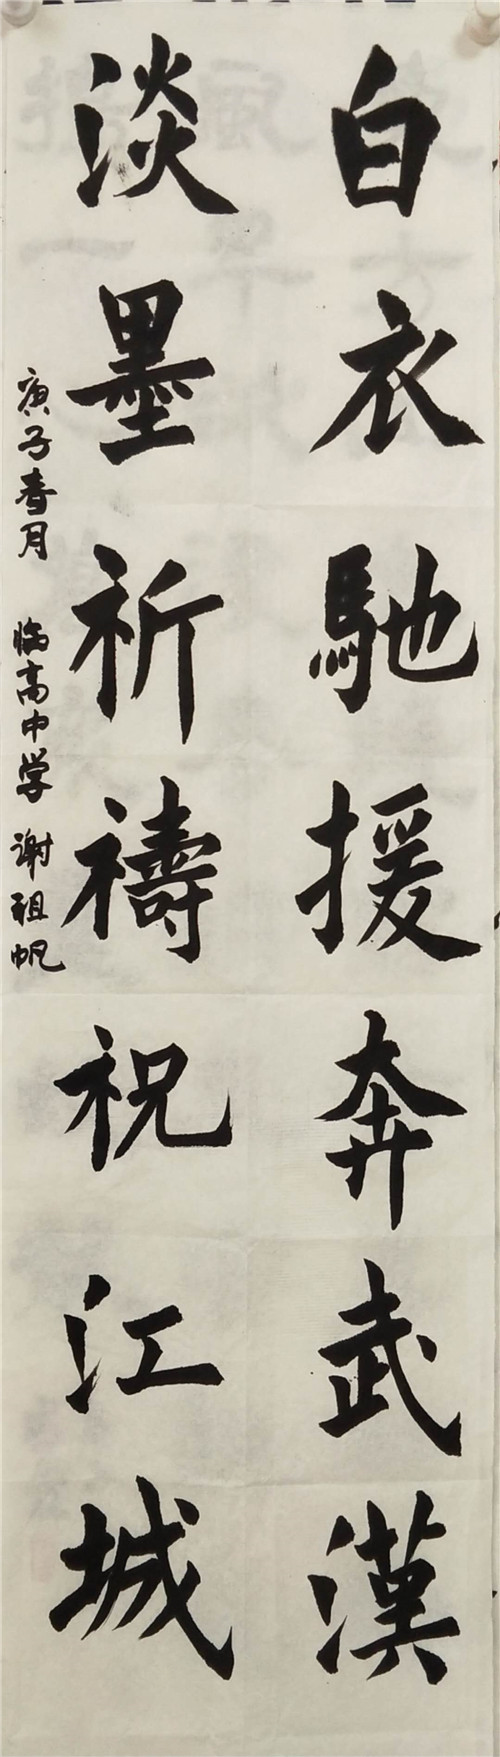 白衣馳援奔武漢
淡墨祈禱祝江城
庚子春月 临高中学 谢祖帆